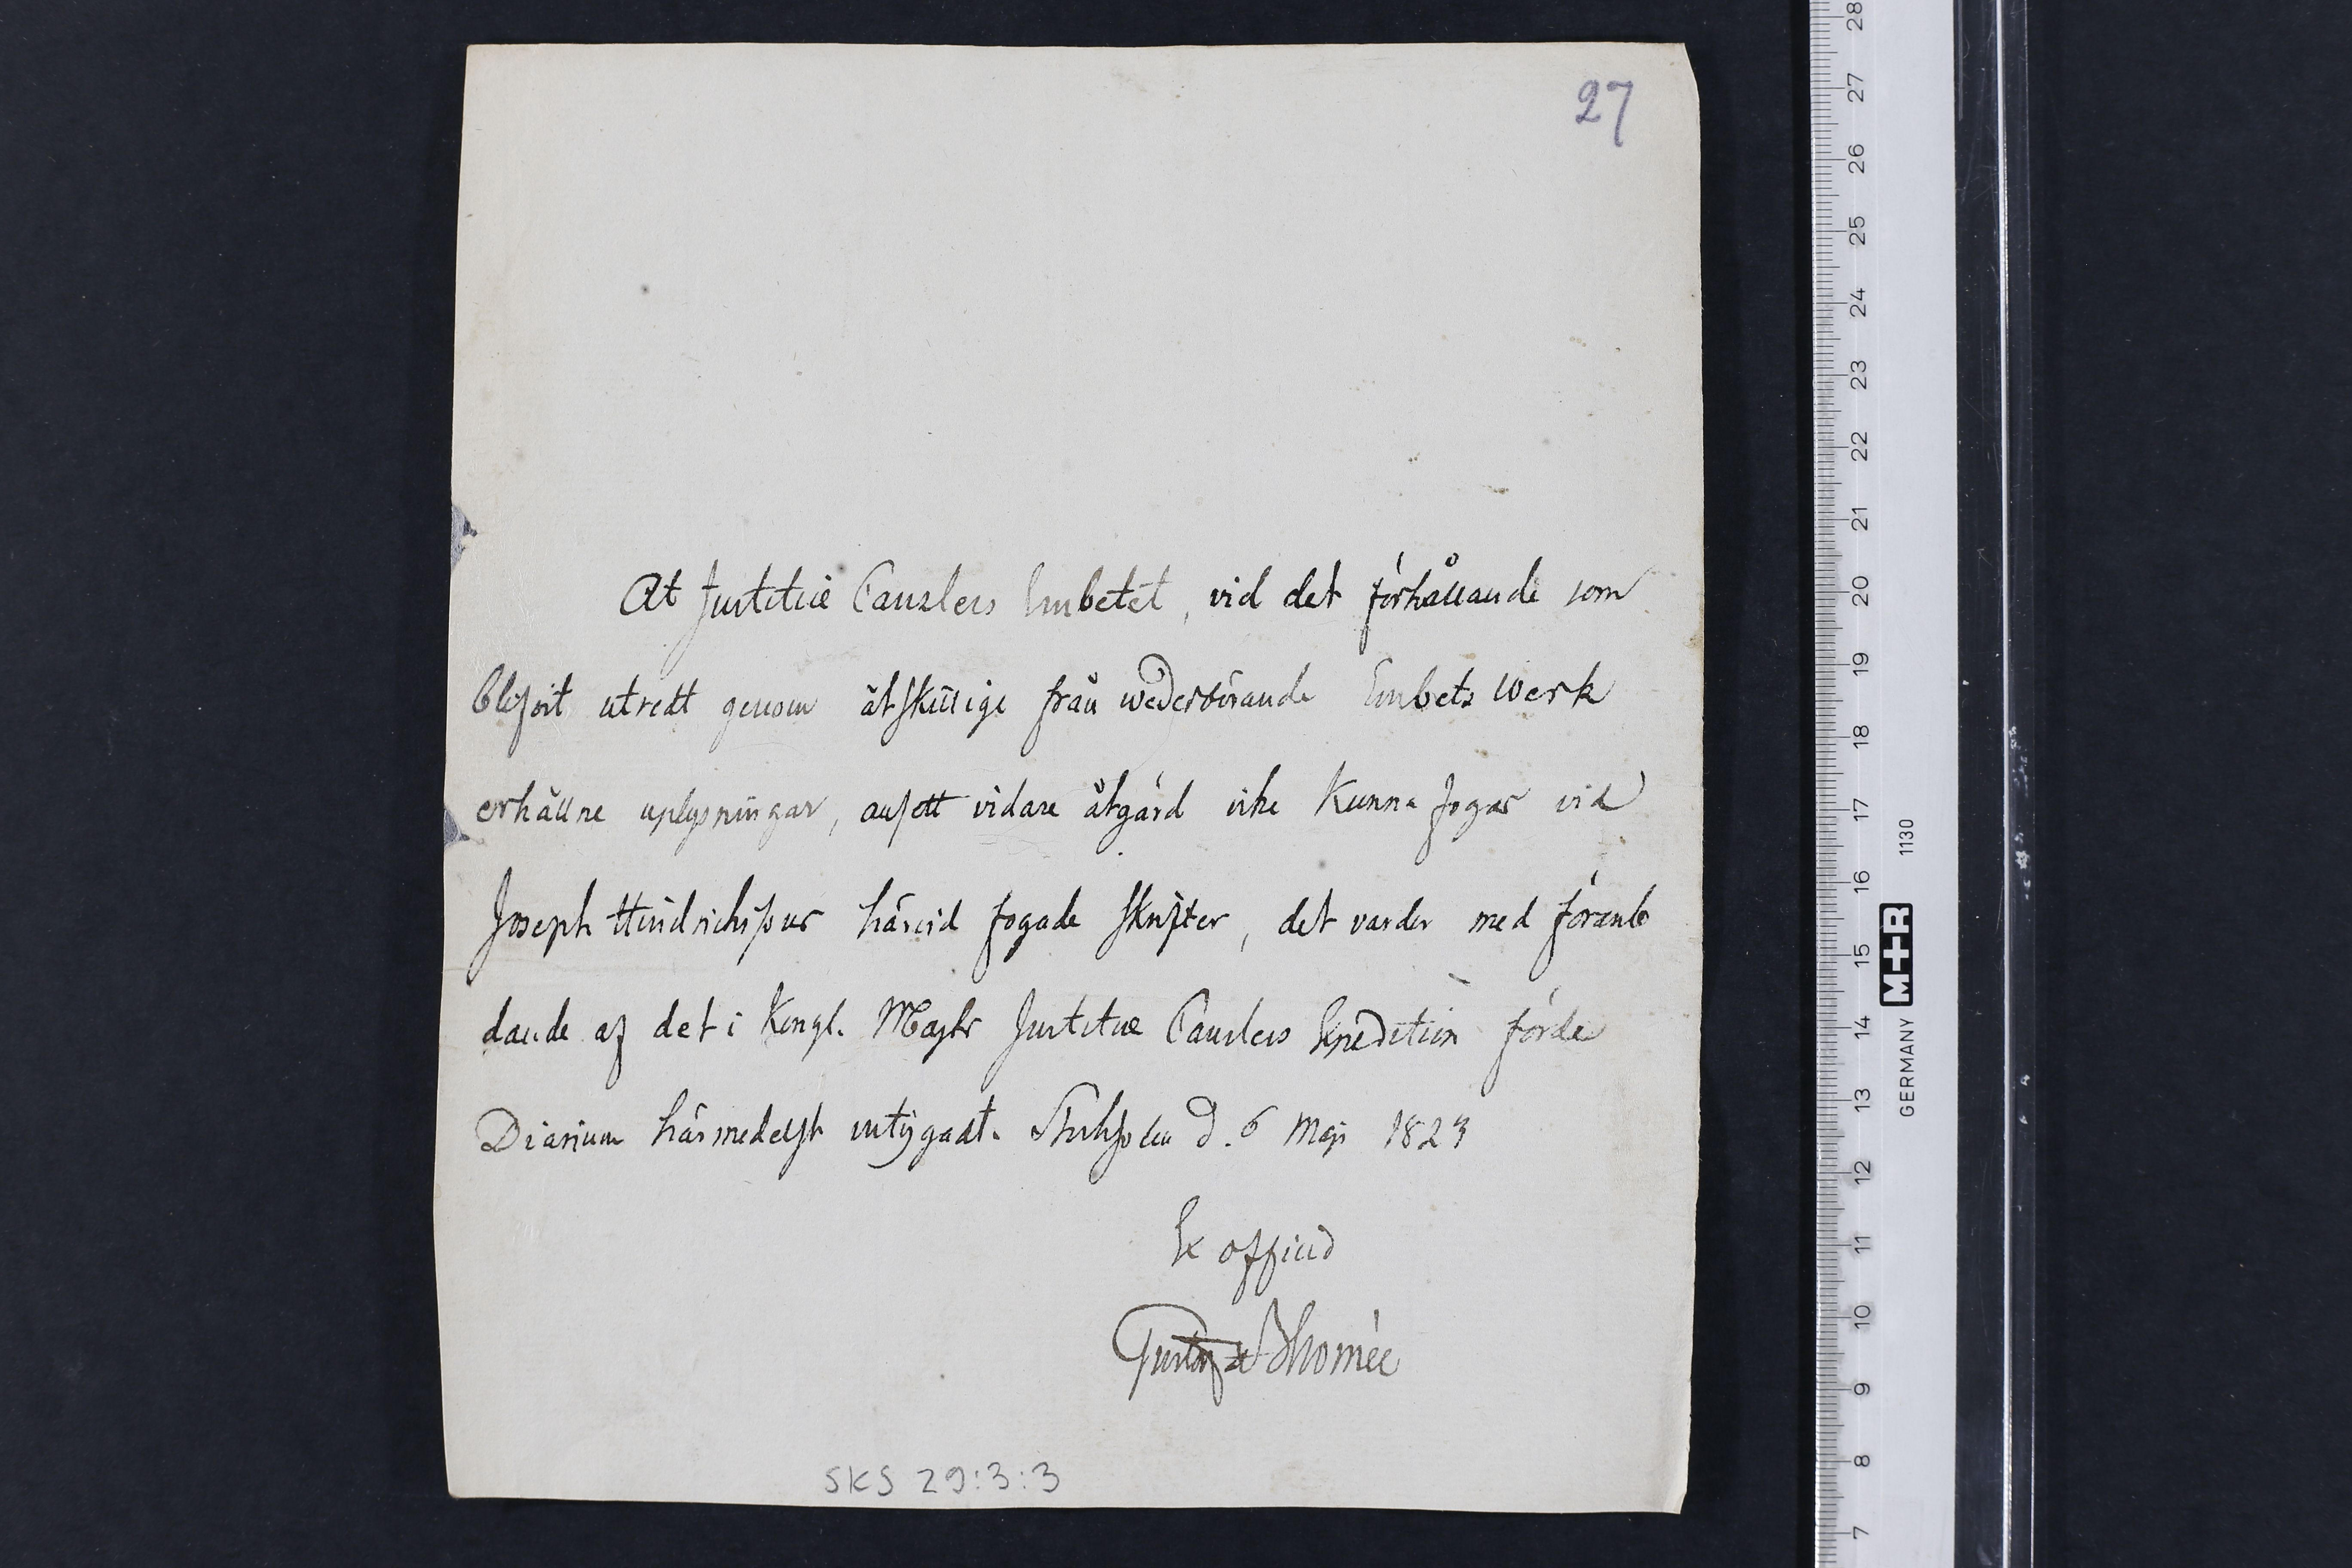 27
At Justitiæ Canzlers Embetet, vid det förhållande som
blifvit utredt genom åtskillige från wederbörande Embets Werk
erhållne uplysningar, ansett vidare åtgärd icke kunna fogas vid
Joseph Hindrichssons härvid fogade skrifter, det varder med föranle
dande af det i Kongl. Majts Justitiæ Canzlers Expedition förde
Diarium härmedelst intygadt. Stockholm d. 6 Maji 1823
Ex officio
Gustaf Thomée
SKS 29:3:3
28
27
26
25
24
23
22
21
20
19
18
17
16
15
14
13
12
11
10
9
8
7
GERMANY M+R 1130